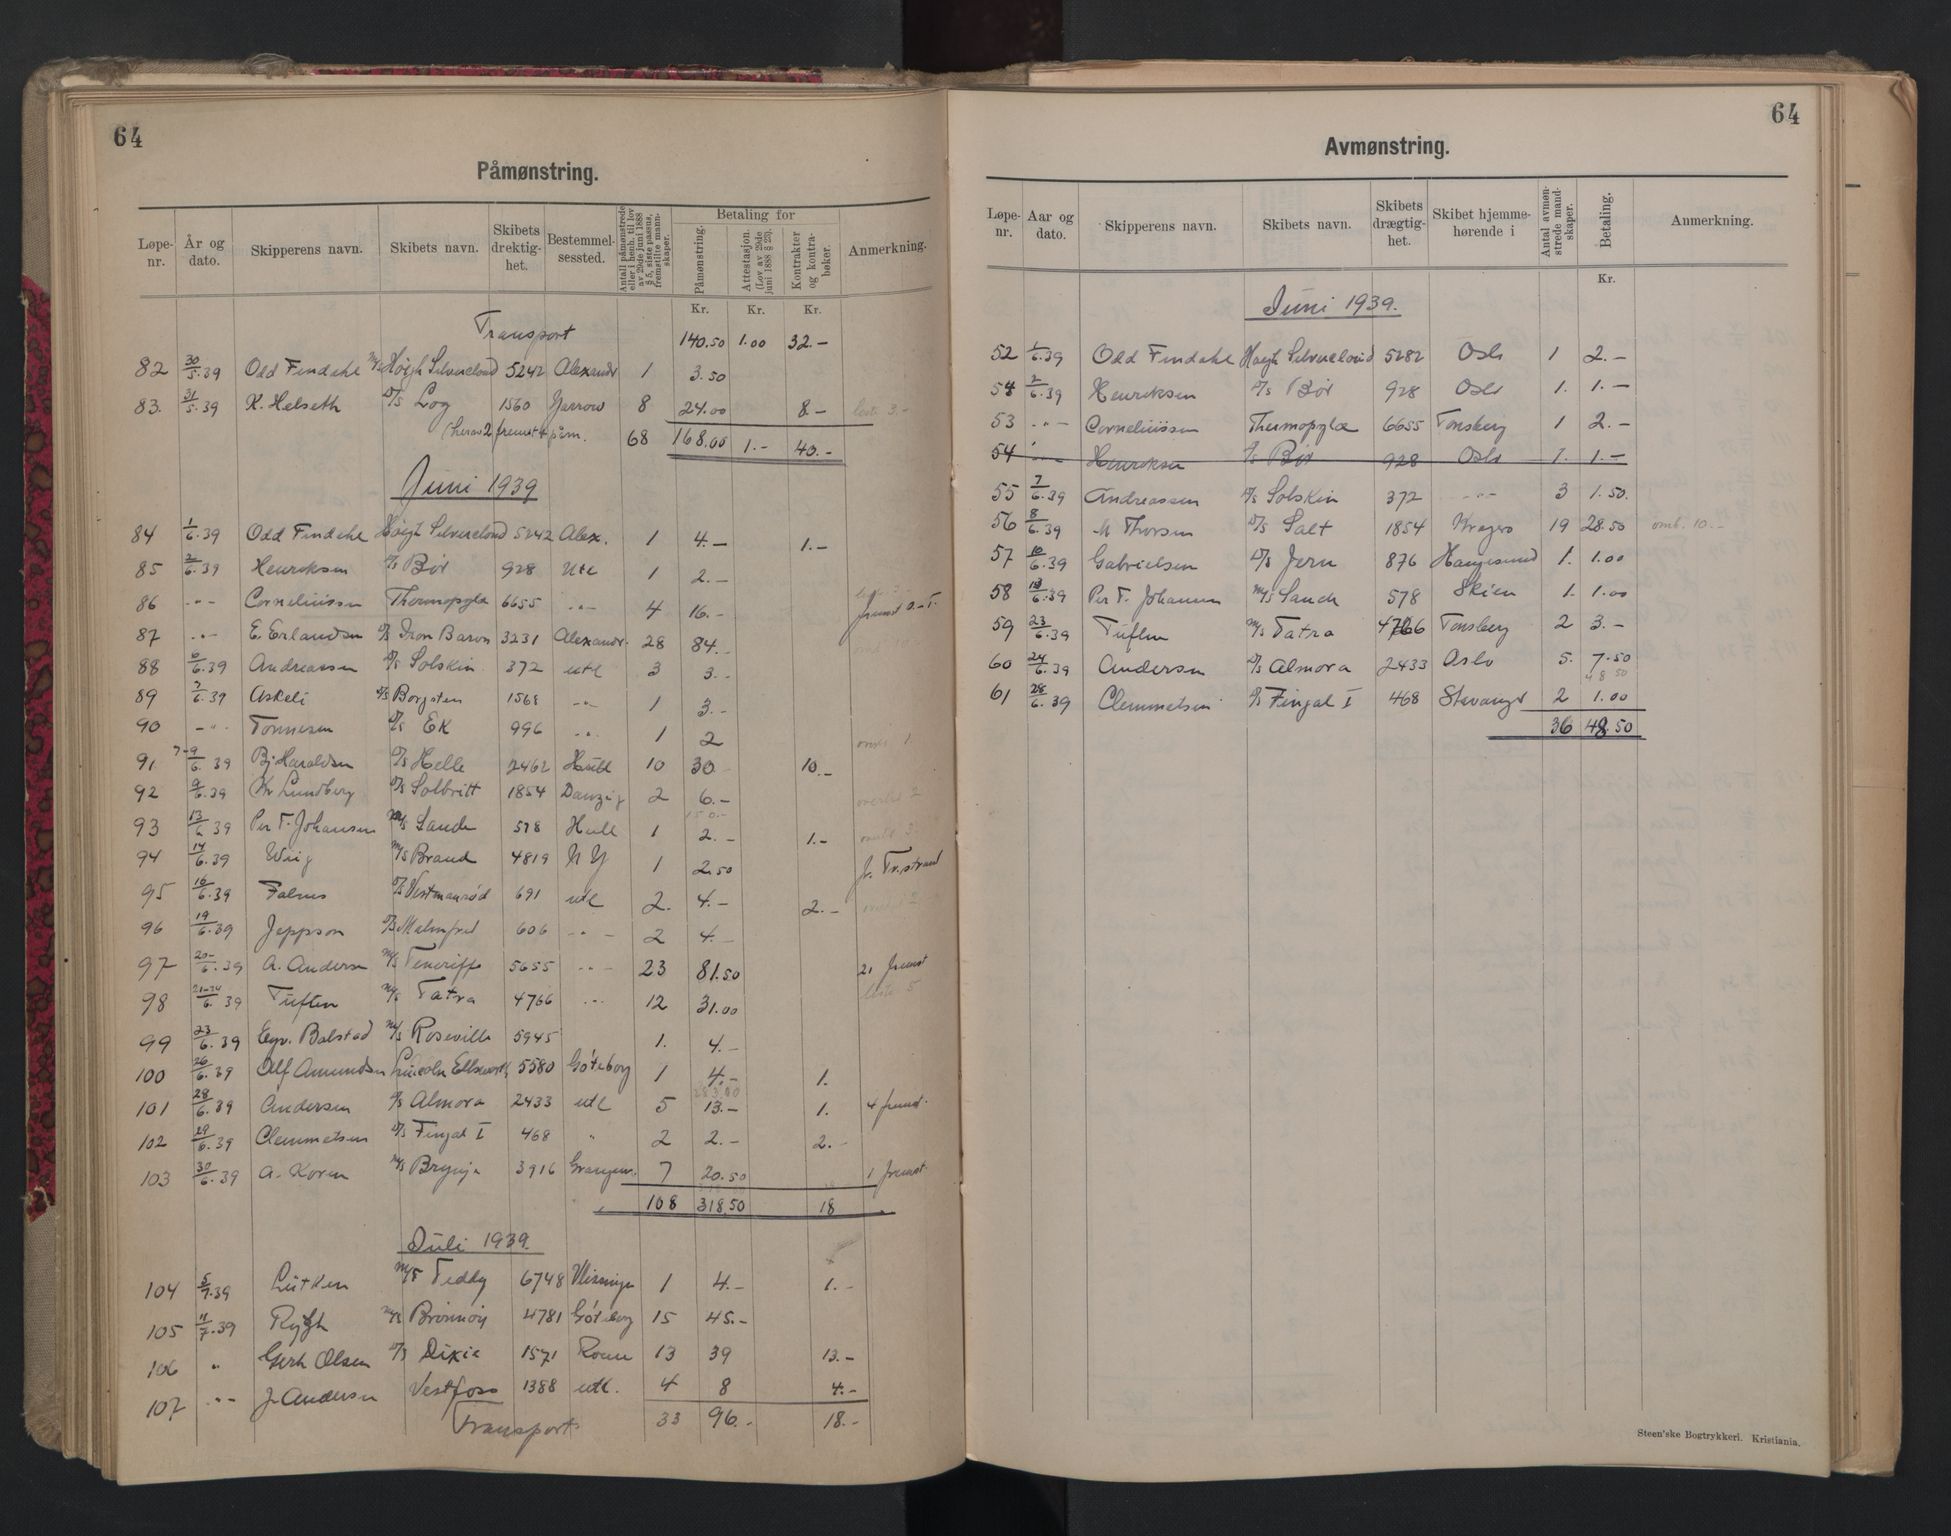 64
Påmønstring.
Løpe-nr. År og dato. Skipperens navn. Skibets navn. Skibets drektig-het. Bestemmel-sessted. Antall påmønstrede eller i henh. til lov av 29de juni 1888 § 5, siste passus, fremstilte mann-skaper. Betaling for Påmønstring. Attestasjon. (Lov av 29de juni 1888 § 25). Kontrakter og kontra-bøker. Anmerkning.
Kr. Kr. Kr.
Transport 140.50 1.00 32.-
82 30/5.39 Odd Findahl M/S Høigh Silvercloud 5242 Alexandr 1 3.50
83. 31/5.39 K. Helseth D/S Log 1560 Jarrow 8 24.00 8.-
(herav 2 fremst + påm. 68 168.00 1.- 40.-
Juni 1939
84 1/6.39 Odd Findahl Høigh Silvercloud 5242 Alex. 1 4.- 1.-
85 2/6.39 Henriksen D/S Bør 928 Utl 1 2.-
86 -"- Corneliussen Thermopylæ 6655 -"- 4 16.-
87 -"- E. Erlandsen D/S Iron Baron 3231 Alexandr. 28 84.-
88 6/6.39 Andreassen D/S Solskin 372 utl 3 3.-
89 7/6.39 Askeli D/S Borgsten 1568 -"- 1 3.-
90 -"- Tønnesen D/S Ek 996 -"- 1 2
91 7-9/6 39 Bj. Haraldsen D/S Helle 2462 Hull 10 30 10.-
92 9/6.39 Kr Lundberg D/S Solbritt 1854 Danzig 2 6.-
93 13/6 39 Per T. Johansen M/S Sande 578 Hull 1 2.- 1.-
94 14/6.39 Wiig M/S Brand 4819 N Y 1 2.50
95 16/6.39 Falnes D/S Vestmanrød 691 utl 2. 4.- 2.-
96 19/6.39 Jeppson D/S Malmfred 606 -"- 2 4.-
97 20-/6.39 A. Andersen M/S Teneriffe 5655 -"- 23 81.50 21 fremst
98 21-24/6.39 Tuften M/S Tatra 4766 -"- 12 31.00
99 23/6.39 Eyv. Balstad M/S Roseville 5945 1. 4.-
100 26/6.39 Alf Amundsen Lincoln Ellsworth 5580 Göteborg 1 4.- 1.
101 28/6.39 Andersen D/S Almora 2433 utl 5 13.- 1. 4 fremst.
102 29/6.39 Clemmetsen D/S Fingal I 468 " 2 2.- 2.-
103 30/6.39 A. Koren M/S Brynje 3916 7 20.50 1 fremst.
108 318.50 18
Juli 1939
104 5/7.39 Lütken M/S Teddy 6748 1 4.- 1.-
105 11/7.39 Rygh M/S Brønnøy 4781 Göteborg 15 45.-
106 " Gerh Olsen D/S Dixie 1571 Rouen 13 39 13.-
107 -"- J. Andersen Vestfoss 1388 utl. 4 8 4.-
Transport 33 96.- 18.-
64
Avmønstring.
Løpe-nr. Aar og dato. Skipperens navn. Skibets navn. Skibets drægtig-het. Skibet hjemme-hørende i Antal avmøn-strede mand-skaper. Betaling. Anmerkning.
Kr.
Juni 1939.
52 1/6.39 Odd Findahl Høegh Silvercloud 5282 Oslo 1 2.-
54 2/6.39 Henriksen D/S Bør 928 Oslo 1. 1.-
53 -"- Corneliussen Thermopylæ 6655 Tønsberg 1 2.-
54 -"- Henriksen D/S Bør 928 Oslo 1. 1.-
55 7/6.39 Andreassen D/S Solskin 372 -"- 3 1.50.
56 8/6.39 M Thorsen D/S Salt 1854 Kragerø 19 28.50 omb. 10.-
57 10/6.39 Gabrielsen D/S Jern 876 Haugesund 1. 1.00
58 13/6.39 Per T. Johansen M/S Sande 578 Skien 1. 1.00
59 23/6.39 Tuften M/S Tatra 4766 Tønsberg 2 3.-
60 24/6.39 Andersen D/S Almora 2433 Oslo 5. 7.50
48 50
61 28/6.39 Clemmetsen D/S Fingal I 468 Stavanger 2 1.00
36 48.50
Steen'ske Bogtrykkeri. Kristiania.